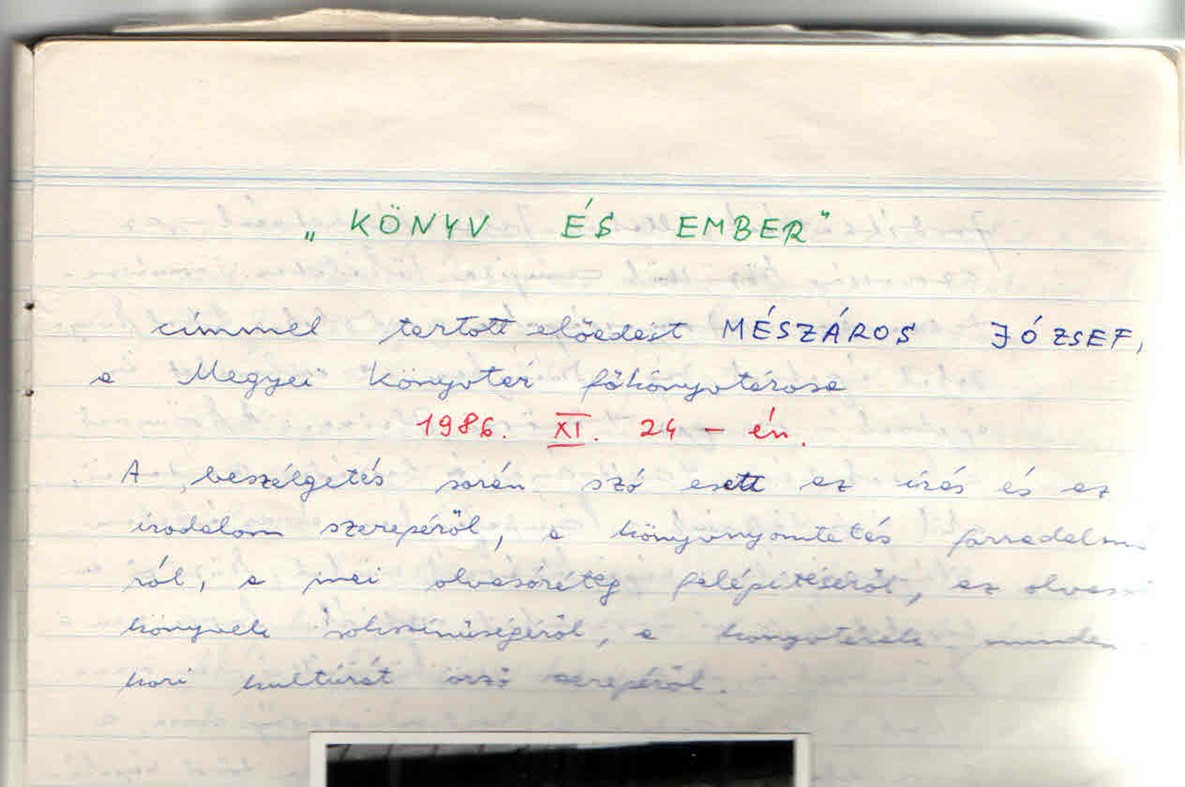 „ KÖNYV ÉS EMBER"
címmel tartott előadást MÉSZÁROS JÓZSEF,
a Megyei Könyvtár főkönyvtárosa
1986. XI. 24 - én.
A beszélgetés során szó esett az írás és az
irodalom szerepéről, a könyvnyomtatás forradalm
ról, a mai olvasóréteg felépítéséről, az olvas
könyvek sokszínűségéről, a könyvtárak minden
kori kultúrát őrző szerepéről.